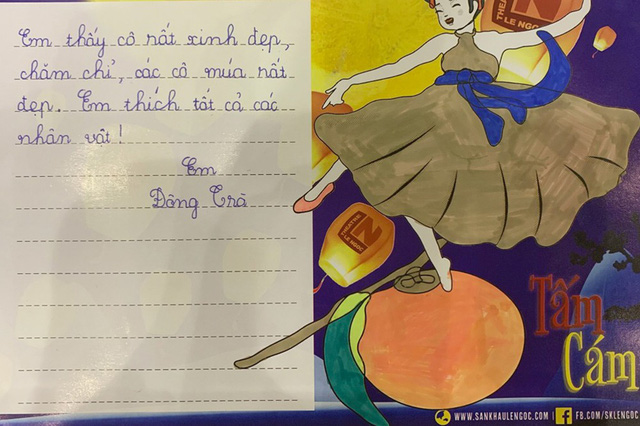 Em thấy cô rất xinh đẹp,
chăm chỉ, các cô múa rất
đẹp. Em thích tất cả các
nhân vật!
Em
Đông Trà
THEATRE
LE NGOC
THEATRE
LE NGOC
Tấm
Cám
WWW.SANKHAULENGOC.COM | FB.COM/SKLENGOC